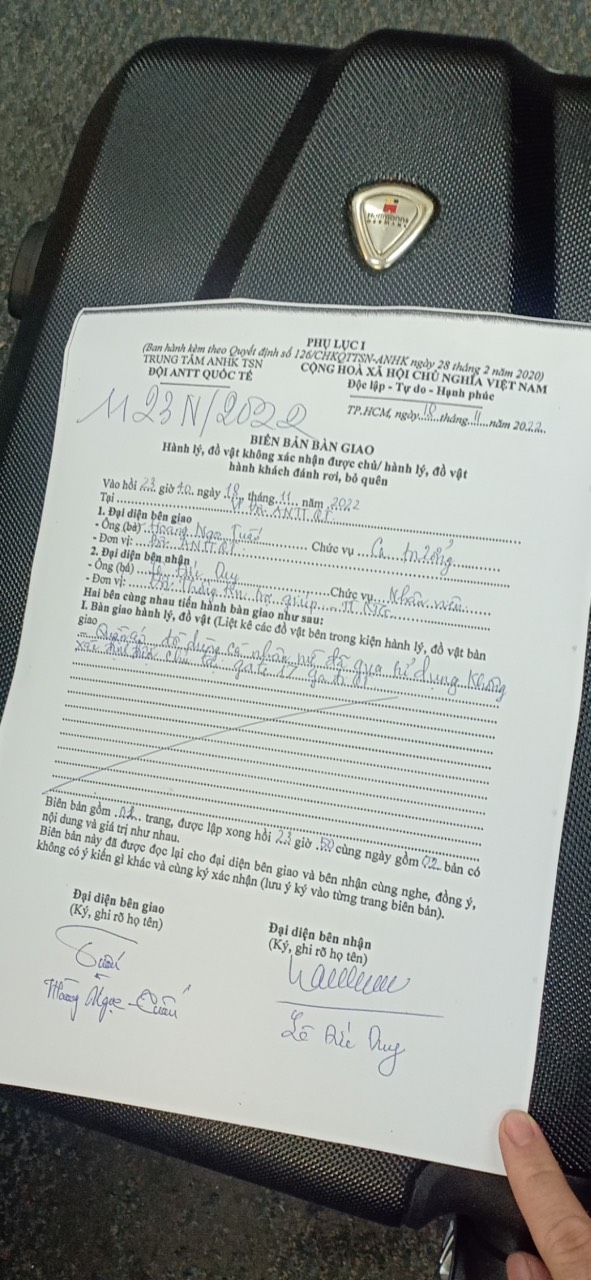 Hoffmanns
GERMANY
PHỤ LỤC I
(Ban hành kèm theo Quyết định số 126/CHKQTTSN-ANHK ngày 28 tháng 2 năm 2020)
TRUNG TÂM ANHK TSN
CỘNG HOÀ XÃ HỘI CHỦ NGHĨA VIỆT NAM
ĐỘI ANTT QUỐC TẾ
Độc lập - Tự do - Hạnh phúc
1123N/2022
TP.HCM, ngày 18 tháng 11 năm 2022
BIÊN BẢN BÀN GIAO
Hành lý, đồ vật không xác nhận được chủ/ hành lý, đồ vật
hành khách đánh rơi, bỏ quên
Vào hồi 23 giờ 40 ngày 18 tháng 11 năm 2022
Tại VP Đội ANTT QT
1. Đại diện bên giao
- Ông (bà) Hoàng Ngọc Tuấn Chức vụ Ca trưởng
- Đơn vị: Đội ANTT QT
2. Đại diện bên nhận
- Ông (bà) Lê Đức Duy Chức vụ Nhân viên
- Đơn vị: trợ giúp
Hai bên cùng nhau tiến hành bàn giao như sau:
I. Bàn giao hành lý, đồ vật (Liệt kê các đồ vật bên trong kiện hành lý, đồ vật bàn
giao
- Quần áo, đồ dùng cá nhân nữ đã qua sử dụng không
xác định được chủ tại gate 17
Biên bản gồm 01 trang, được lập xong hồi 23 giờ 50 cùng ngày gồm 02 bản có
nội dung và giá trị như nhau.
Biên bản này đã được đọc lại cho đại diện bên giao và bên nhận cùng nghe, đồng ý,
không có ý kiến gì khác và cùng ký xác nhận (lưu ý ký vào từng trang biên bản).
Đại diện bên giao
(Ký, ghi rõ họ tên)
Đại diện bên nhận
(Ký, ghi rõ họ tên)
Tuấn
Hoàng Ngọc Tuấn
Lê Đức Duy